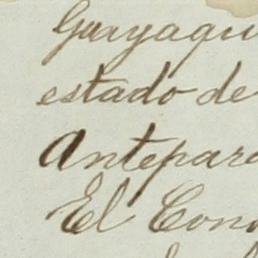 Guayaqui
estado de
Antepara
El Con